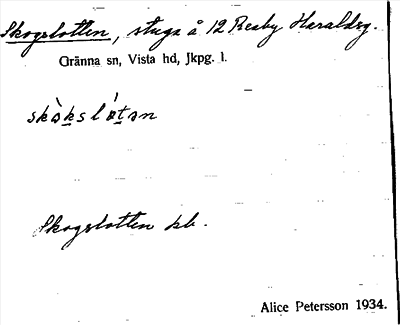 Skogslotten, stuga å 12 Reaby Haraldsg.
Gränna sn, Vista hd, Jkpg. l.
skòkslátən
Skogslotten kb.
Alice Petersson 1934.